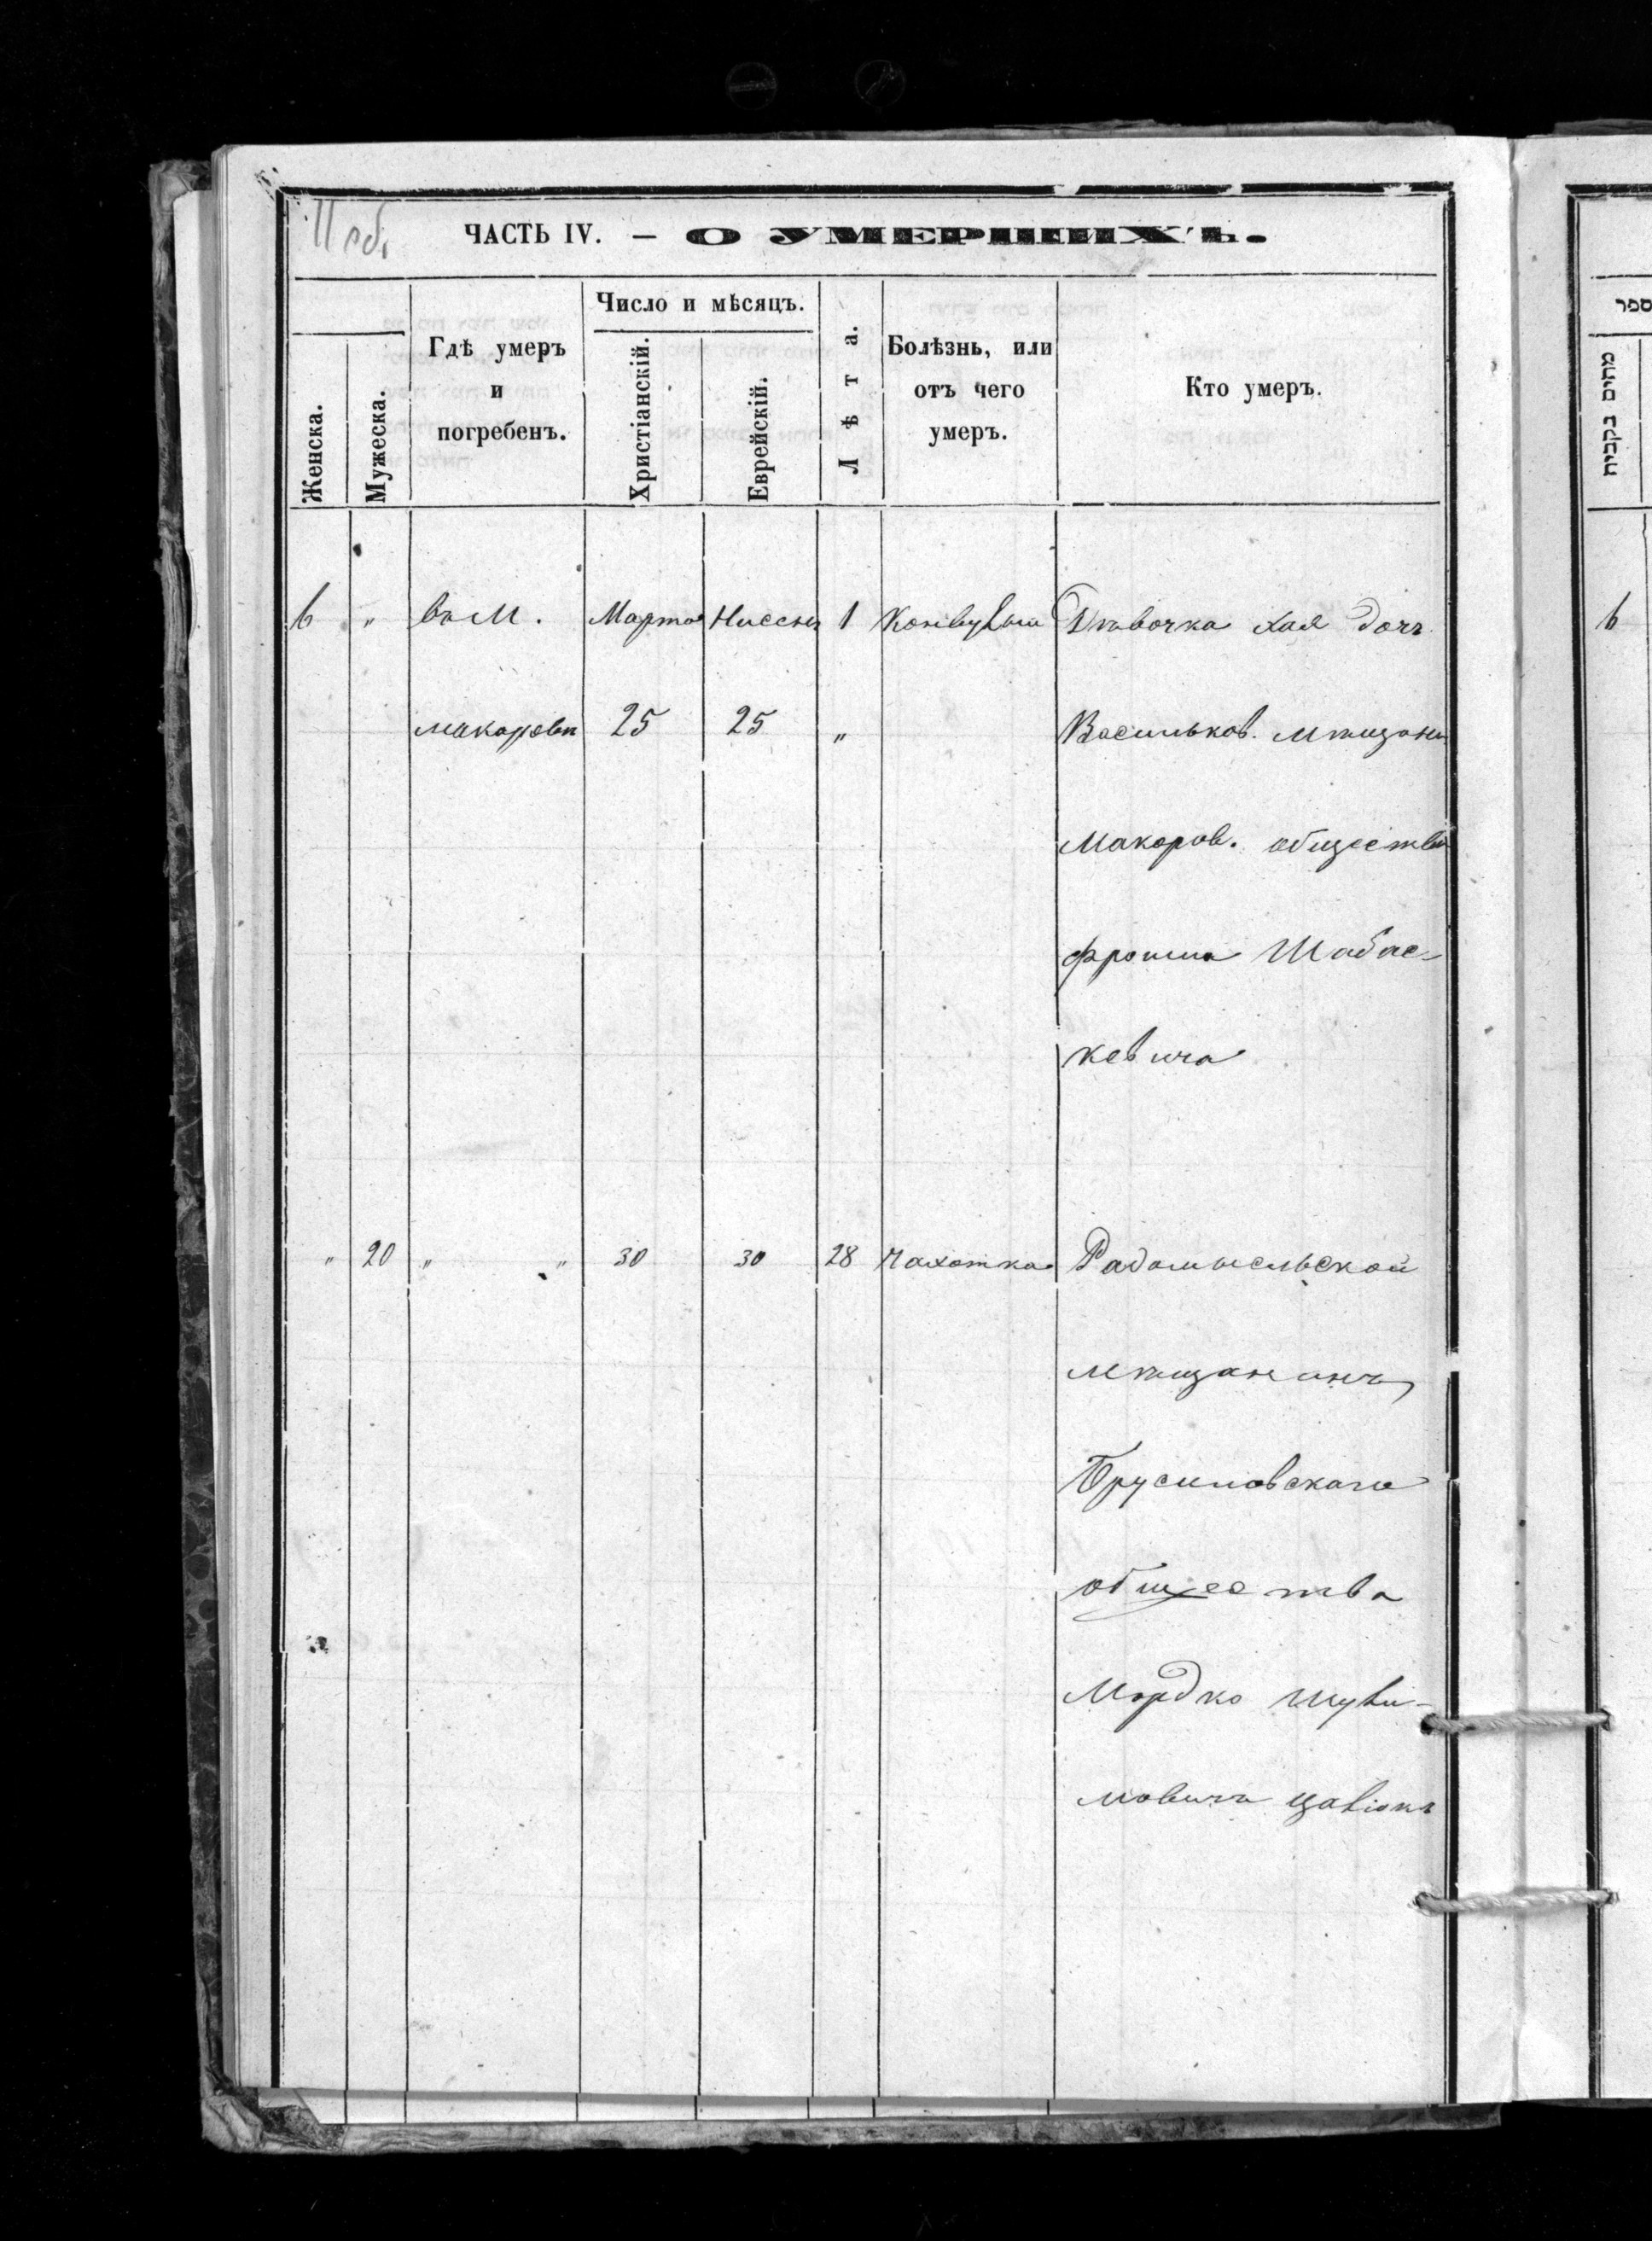 11 об.
ЧАСТЬ IV. — О УМЕРШИХЪ.
Женска.
Мужеска.
Гдѣ умеръ
и
погребенъ.
Число и мѣсяцъ.
Христіанскій.
Еврейскій.
Лѣта.
Болѣзнь, или
отъ чего
умеръ.
Кто умеръ.
6 " въ М. Марта Ниссонъ 1 Конвульсіи Дѣвочка Хая дочь
Макаровѣ 25 25 " Васильков. мѣщанина
Макаров. общества
Фроима Шабас-
кевича
" 20 " " 30 30 28 Чахотка Радомысльской
мѣщанинъ
Брусиловскаго
общества
Мордко Шули-
мовичъ
ספר
מתים
6